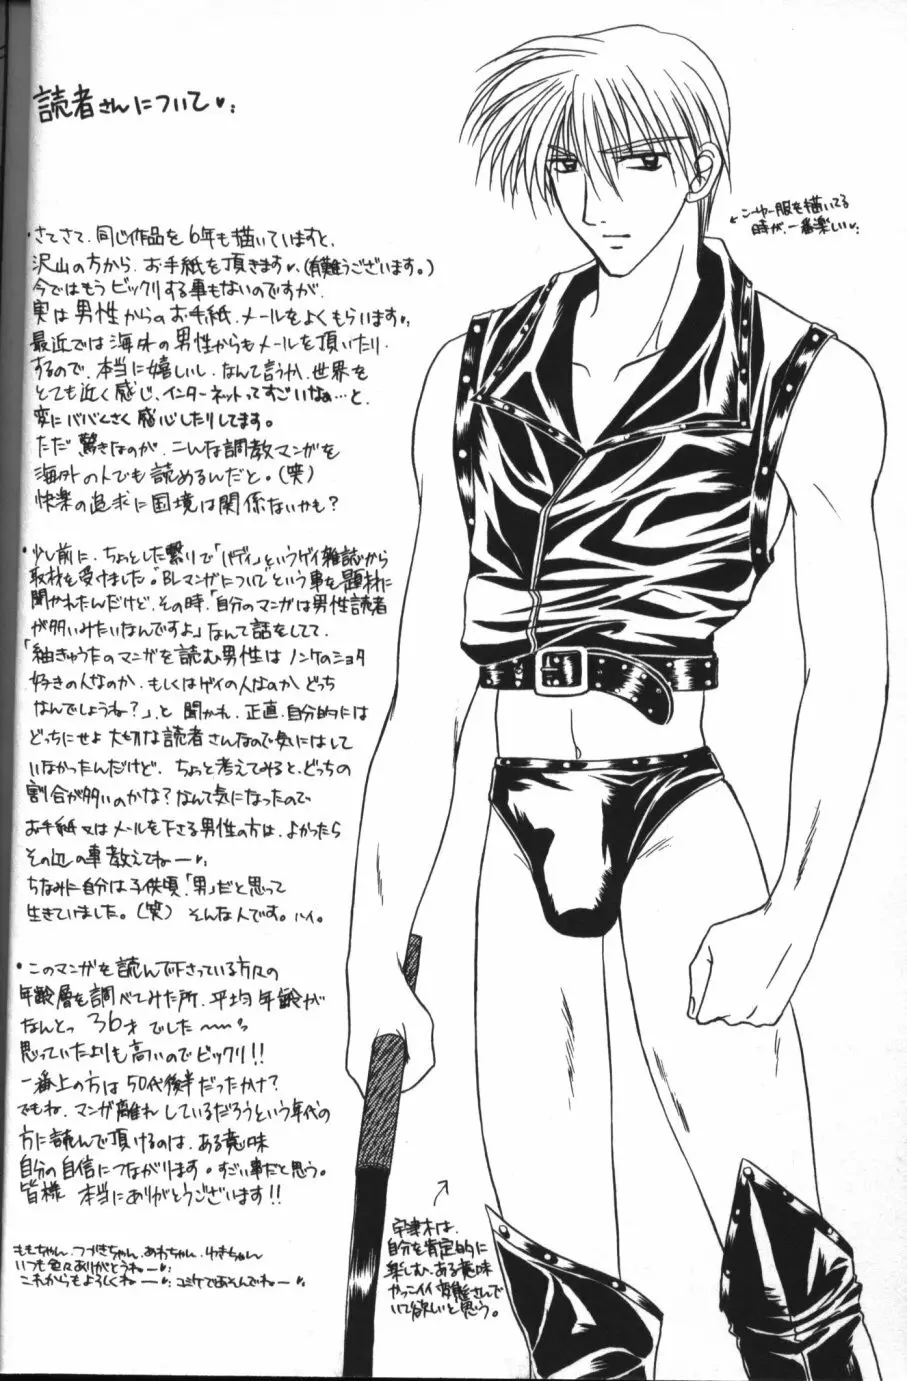 読者さんについて♥:
・さてさて、同じ作品を6年も描いていますと、
沢山の方から、お手紙を頂きます♥、(有難うございます。)
今ではもうビックリする事もないのですが、
実は男性からのお手紙、メールをよくもらいます♥:
最近では海外の男性からもメールを頂いたり
するので、本当に嬉しいし、なんて言うか、世界を
とても近く感じ、インターネットってすごいなぁ…と、
変にババくさく感心したりしてます。
ただ驚きなのが、こんな調教マンガを
海外の人でも読めるんだと。(笑)
快楽の追求に国境は関係ないかも?
・少し前に、ちょっとした繋りで「バディ」というゲイ雑誌から
取材を受けました。"BLマンガについて"という事を題材に
聞かれたんだけど、その時、「自分のマンガは男性読者
が多いみたいなんですよ」なんて話をしてて、
「紬きゅうたのマンガを読む男性はノンケのショタ
好きの人なのか、もしくはゲイの人なのか、どっち
なんでしょうね?」、と聞かれ、正直、自分的には
どっちにせよ大切な読者さんなので気にはして
いなかったんだけど、ちょっと考えてみると、どっちの
割合が多いのかな?なんて気になったので
お手紙又はメールを下さる男性の方は、よかったら
その辺の事教えてねー♥:
ちなみに自分は子供頃、「男」だと思って
生きていました。(笑) そんな人です。ハイ。
・このマンガを読んで下さっている方々の
年齢層を調べてみた所、平均年齢が
なんとっ 36才でした〜〜っ
思っていたよりも高いのでビックリ!!
一番上の方は50代後半だったかナ?
でもね、マンガ離れしているだろうという年代の
方に読んで頂けるのは、ある意味
自分の自信につながります。すごい事だと思う。
皆様 本当にありがとうございます!!
ももちゃん、つづきちゃん、あわちゃん、ゆきちゃん
いつも色々ありがとうねー♥:
これからもよろしくねー♥: コミケであそんでねー♥:
←シーヤー服を描いてる
時が、一番楽しい♥:
宇津木は、
自分を肯定的に
楽しむ、ある意味
やっこイイ変態さんで
いて欲しいと思う。